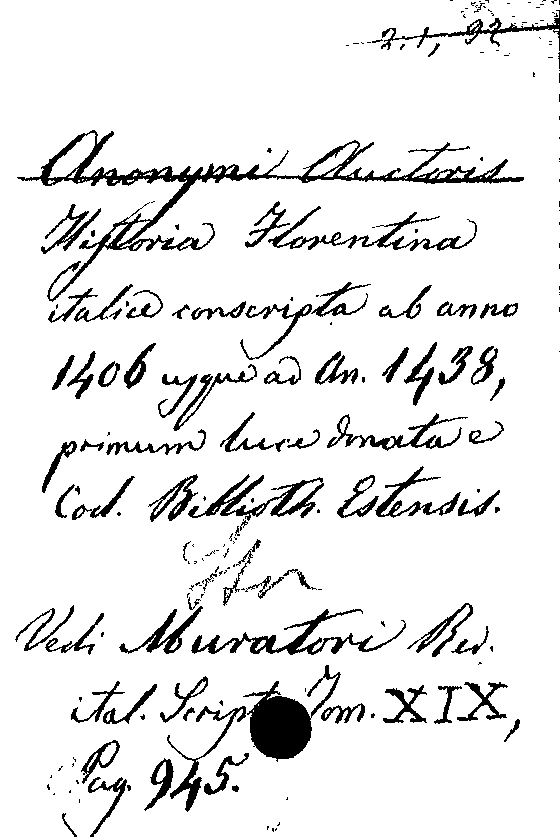 2.1, 92
Anonymi Auctoris
Historia Florentina
italice conscripta ab anno
1406 usque ad An. 1438,
primum luce donata e
Cod. Biblioth. Estensis.
Vedi Muratori Rer.
ital. Script. Tom. XIX,
Pag. 945.